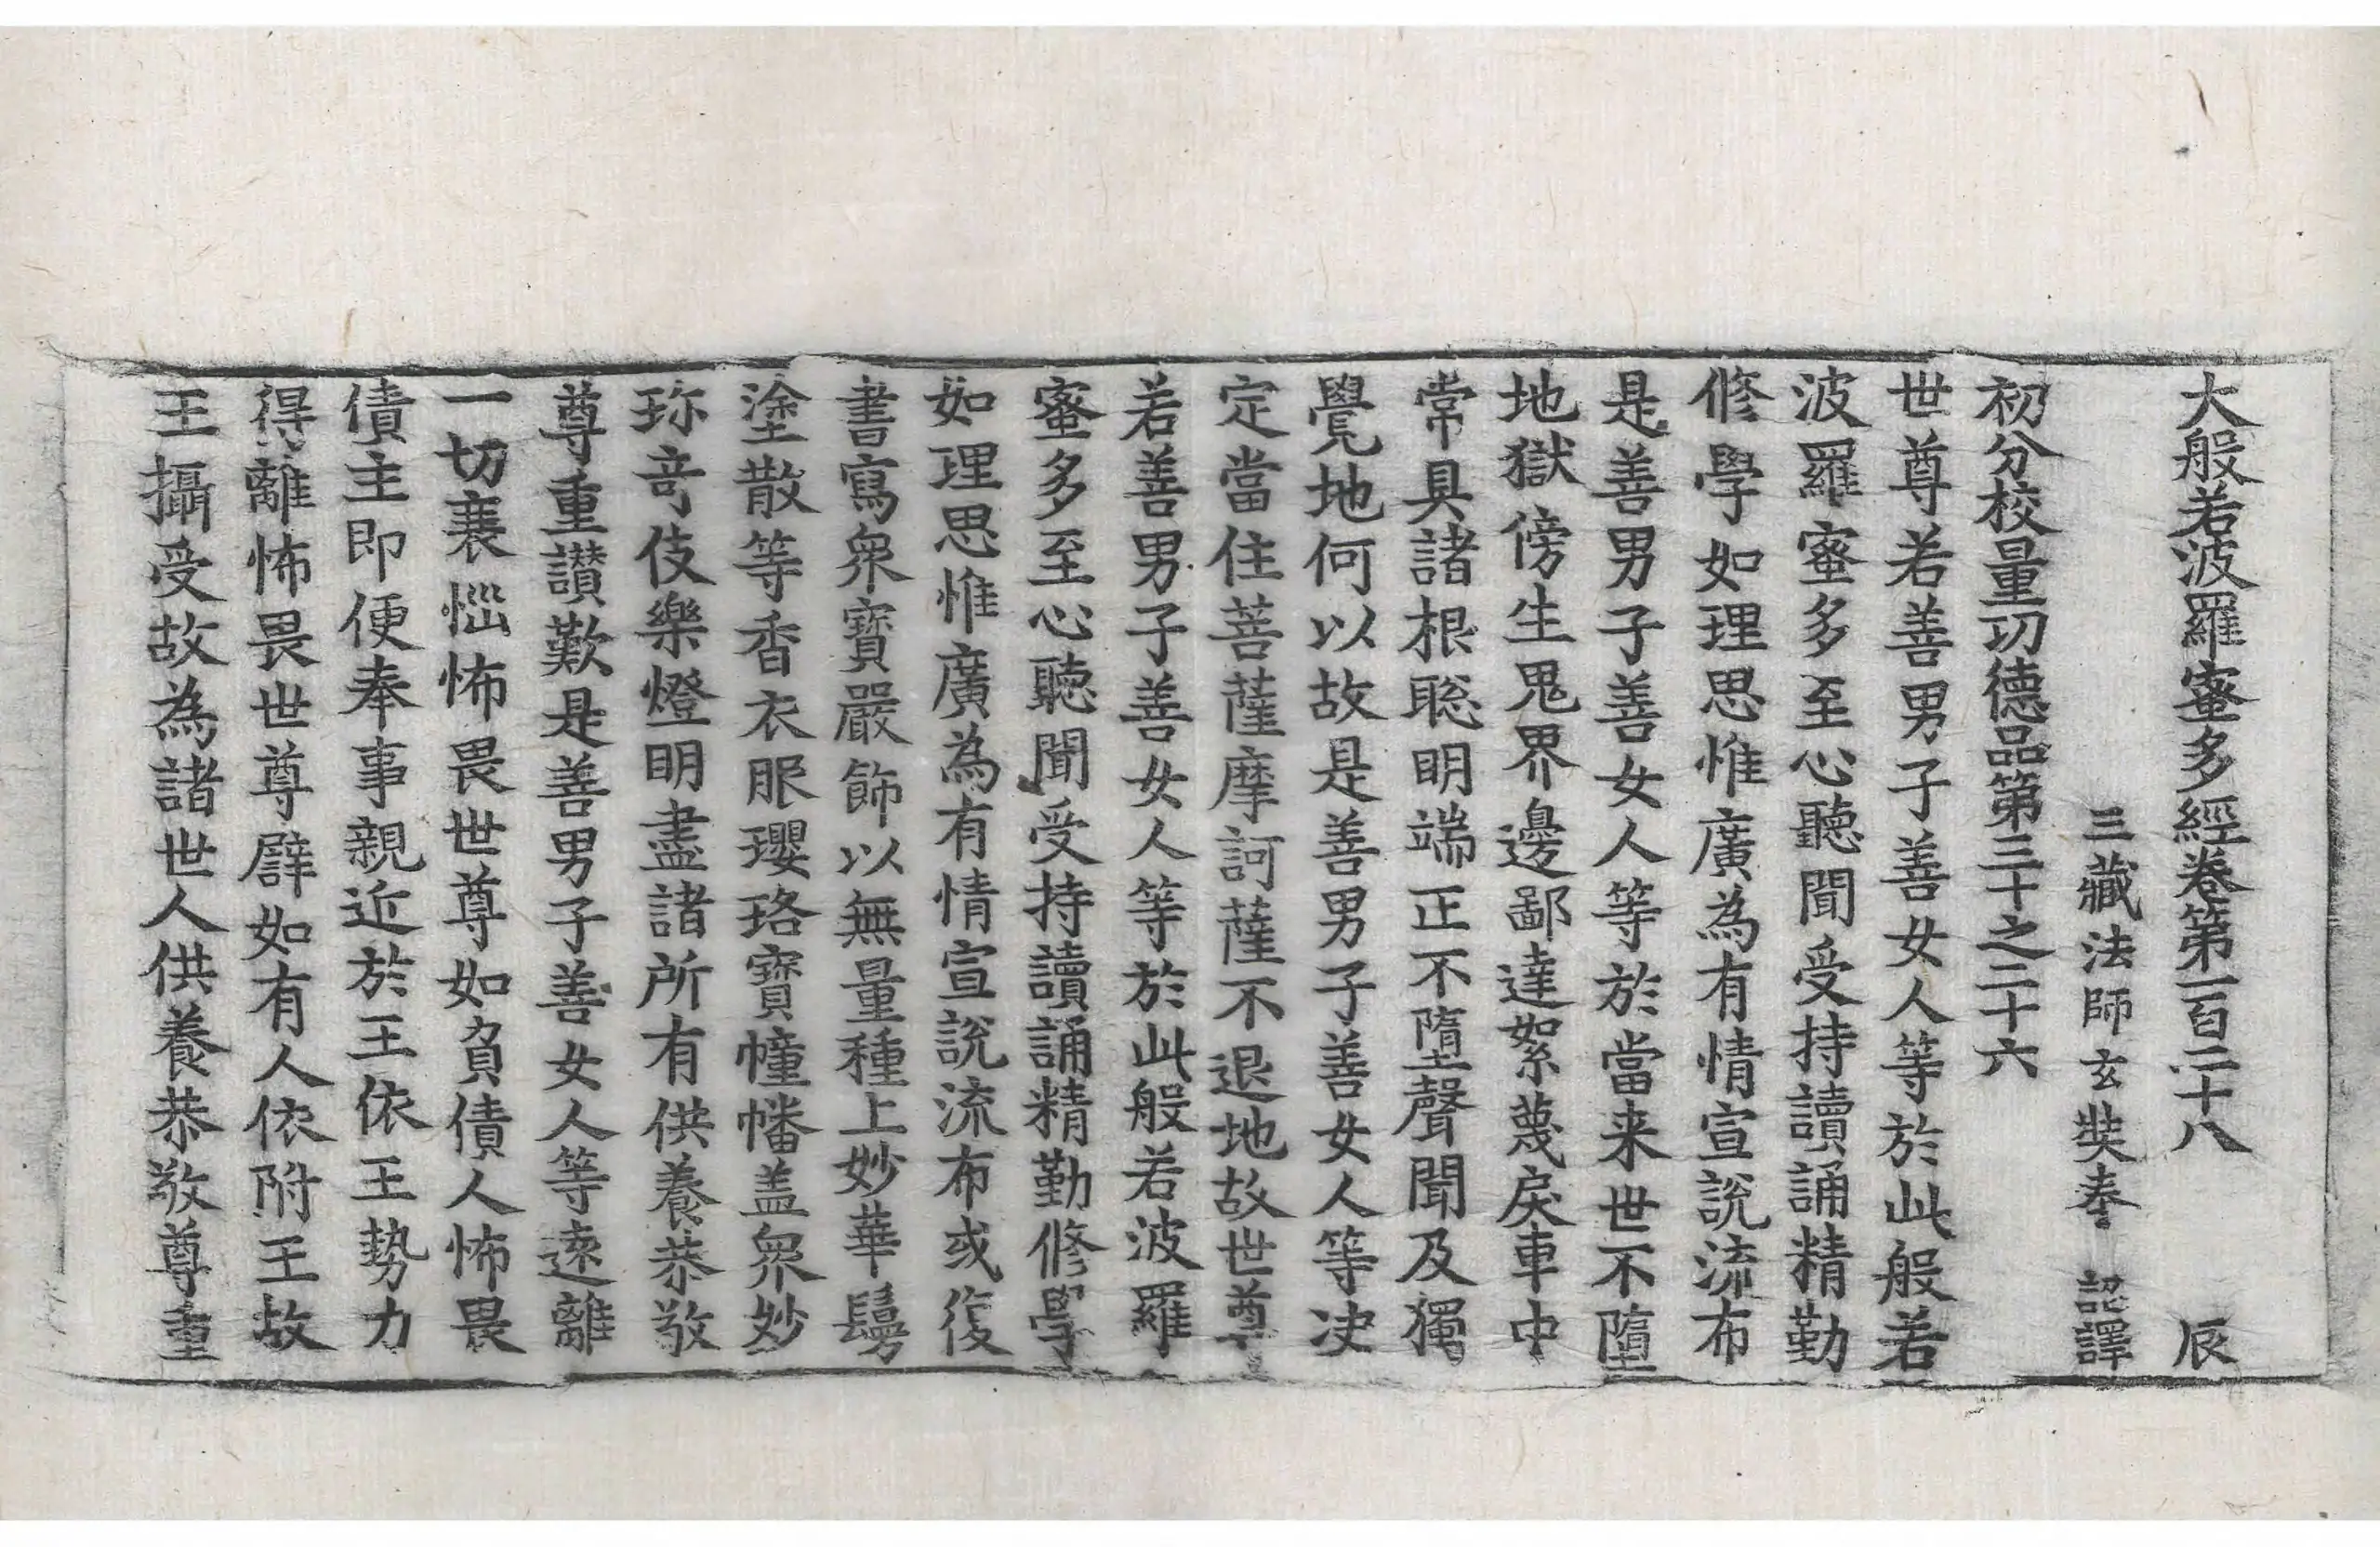 大般若波羅蜜多經卷第一百二十八 辰
三藏法師玄奘奉 詔譯
初分校量功德品第三十之二十六
世尊若善男子善女人等於此般若
波羅蜜多至心聽聞受持讀誦精勤
修學如理思惟廣為有情宣說流布
是善男子善女人等於當来世不墮
地獄傍生鬼界邊鄙達絮蔑戾車中
常具諸根聡明端正不墮聲聞及獨
覺地何以故是善男子善女人等决
定當住菩薩摩訶薩不退地故世尊
若善男子善女人等於此般若波羅
蜜多至心聽聞受持讀誦精勤修學
如理思惟廣為有情宣說流布或復
書寫衆寶嚴飾以無量種上妙華鬘
塗散等香衣服瓔珞寶幢幡盖衆妙
珎竒伎樂燈明盡諸所有供養恭敬
尊重讃歎是善男子善女人等遠離
一切衰惱怖畏世尊如負債人怖畏
債主即便奉事親近於王依王勢力
得離怖畏世尊譬如有人依附王故
王攝受故為諸世人供養恭敬尊重